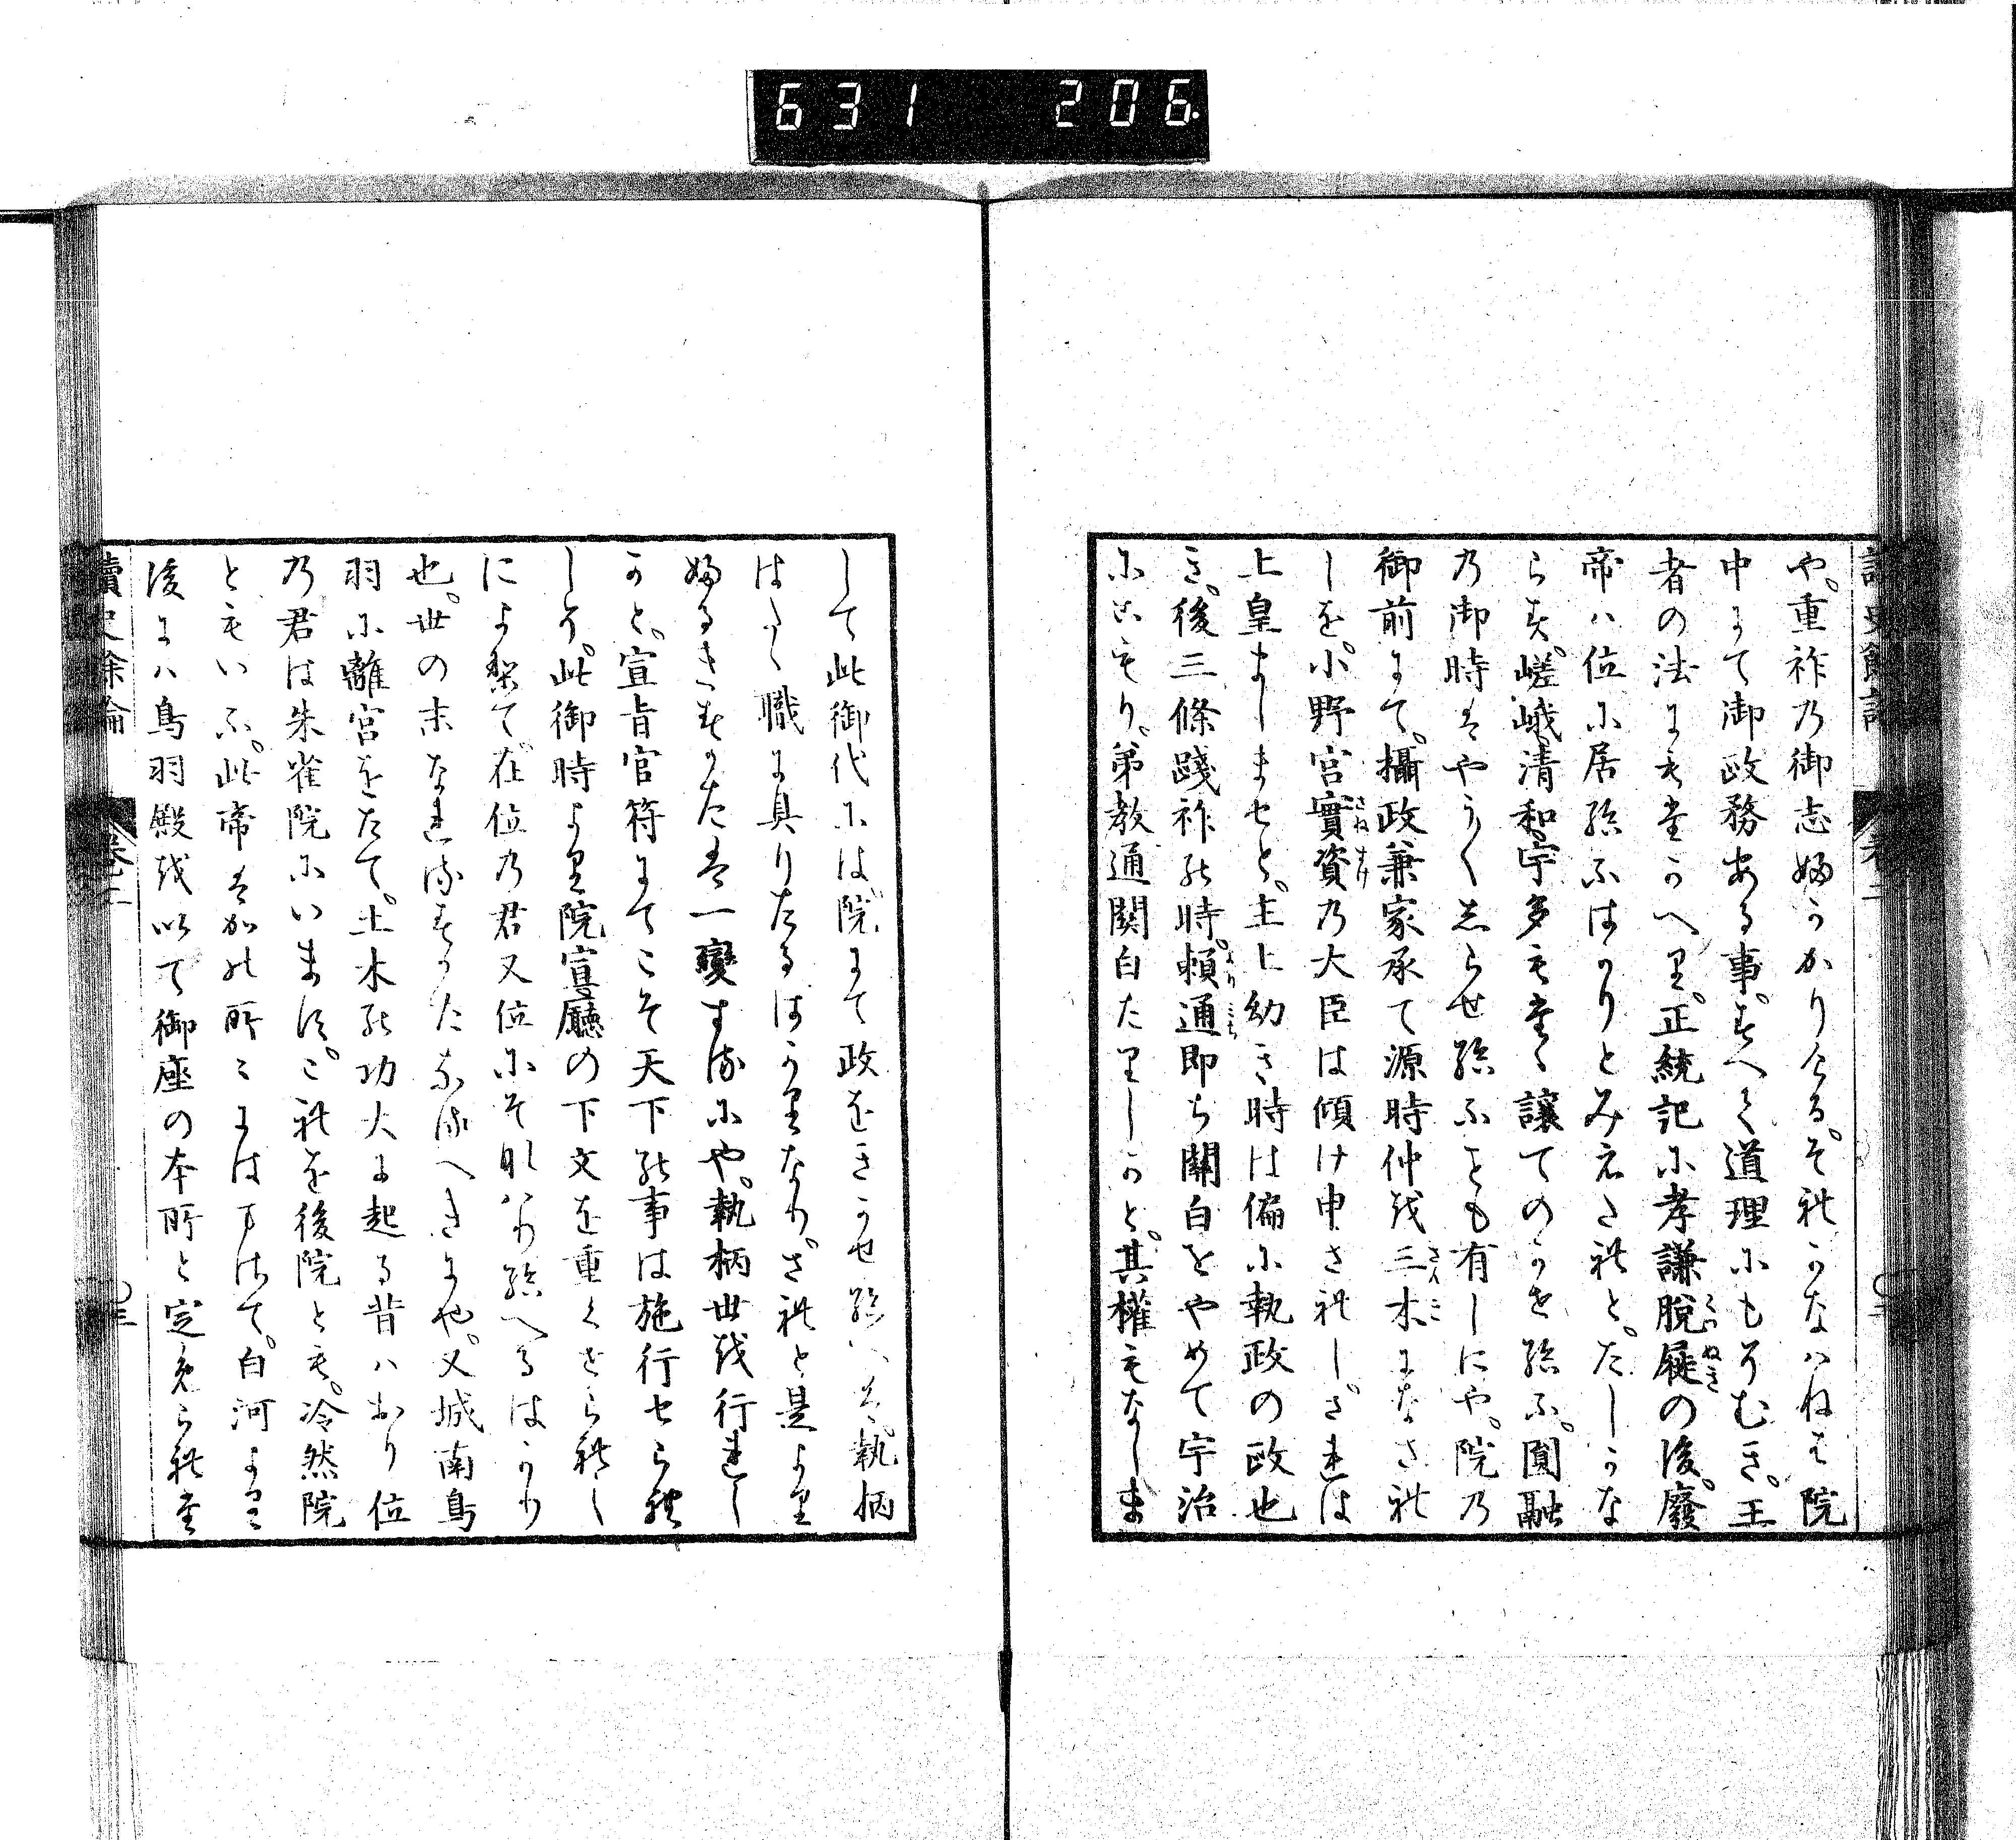 631 206
や。重祚乃御志ふかりける。それかなはねは院
中にて御政務ある事。すへて道理にもそむき。王
者の法にもたかへり。正統記に孝謙脱屣の後。廢
帝ハ位に居給ふはかりとみえされと。たしかな
らす。嵯峨清和宇多もたゝ讓てのかせ給ふ。圓融
乃御時はやうくしらせ給ふとも有しにや。院乃
御前にて。攝政兼家承て源時仲を三木になされ
しを。小野宮實資乃大臣は傾け申されしされは
上皇ましませと。主上幼き時は偏に執政の政也
き。後三條踐祚の時。頼通即ち關白をやめて宇治
にこもり。弟教通関白たりしかと。其權もなしま
して此御代には院にて政をきかせ給へは執柄
はたゝ職に具りたるはかりなり。されと是より
ふるきすかたは一變するにや。執柄世を行れし
かと。宣旨官符にてこそ天下の事は施行せられ
しに。此御時より院宣廳の下文を重くせられし
により梨て在位乃君又位にそなハり給へるはかり
也。世の末なれるすかたなるへきにや。又城南鳥
羽に離宮をたて。土木の功大に起る昔ハおり位
乃君は朱雀院にいます。これを後院とも。冷然院
ともいふ。此帝はかの所々にはすまて。白河より
後にハ鳥羽殿を以て御座の本所と定めらけり
讀史餘論 卷二 三